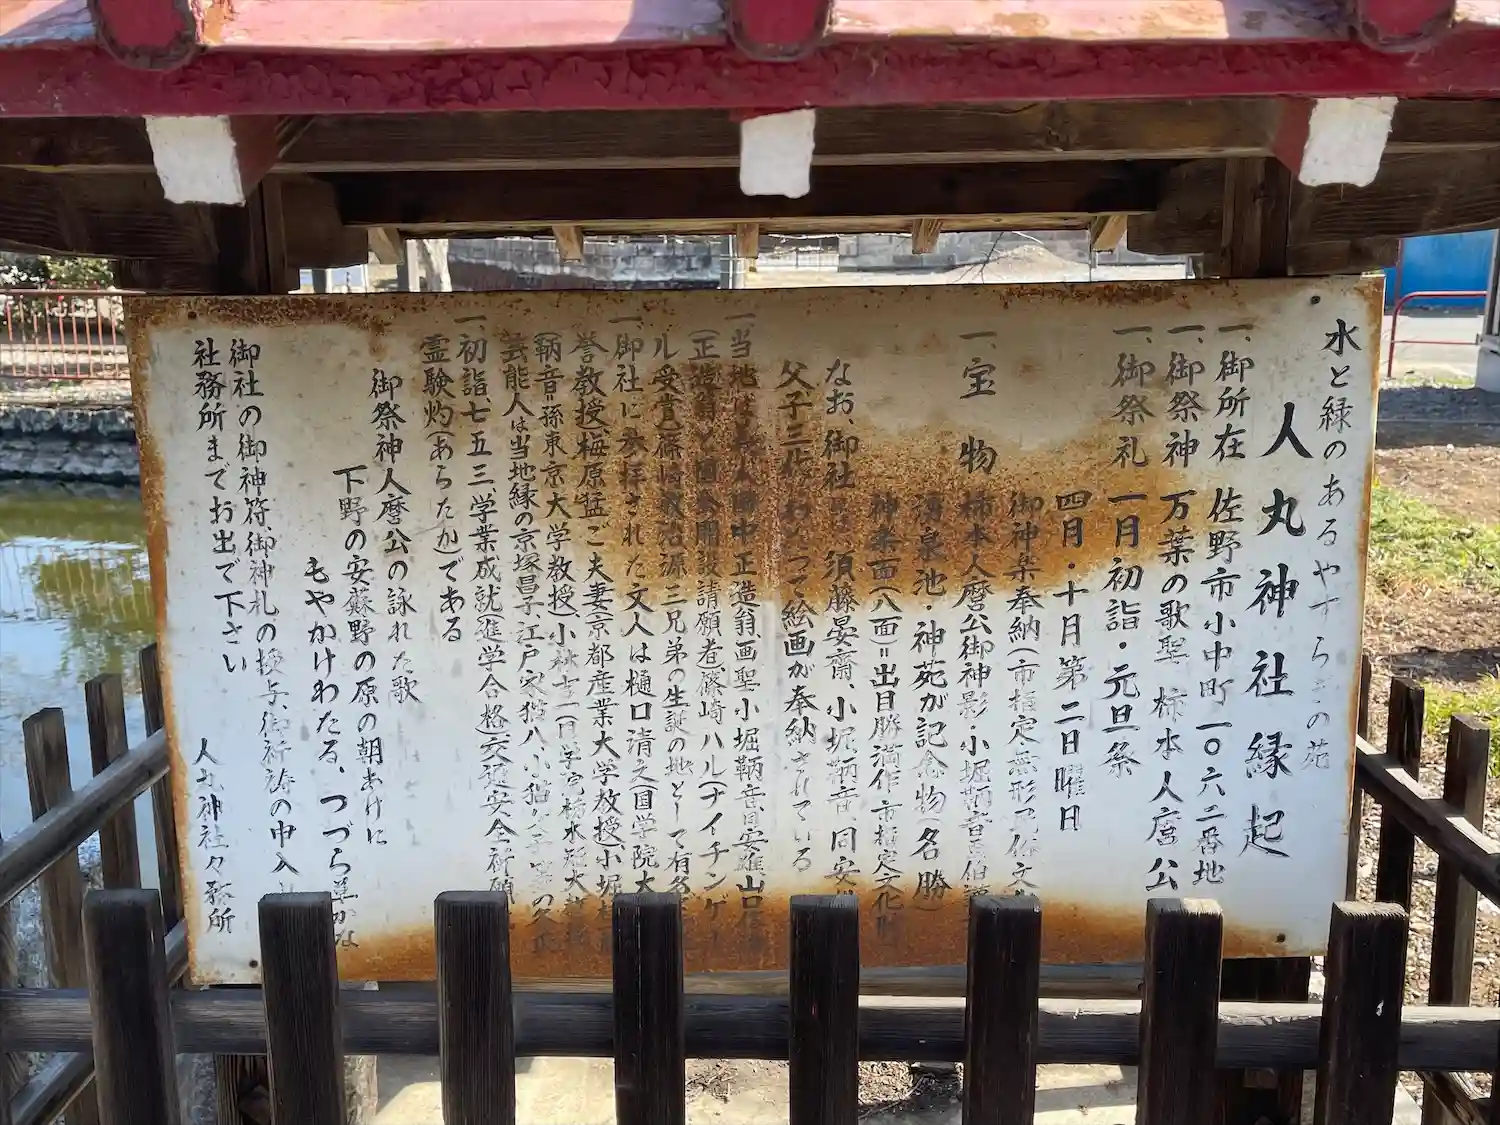 水と緑のあるやすらぎの苑
人丸神社縁起
一、御所在 佐野市小中町一〇六二番地
一、御祭神 万葉の歌聖 柿本人麿公
一、御祭礼 一月初詣・元旦祭
四月・十月第二日曜日
御神楽奉納(市指定無形
一、宝物 柿本人麿公御神影・小堀鞆音
湧泉池・神苑が記念物(名勝
神楽面(八面)=出目勝満作 市指定文化
なお、御社 須藤晏齋、小堀鞆音、同安雄
父子三 絵画が奉納されている
一、当地は 田中正造翁、画聖小堀鞆音、安雄、山口
(正造翁と国会開設請願者、篠崎ハル(ナイチンゲー
ル受賞)篠崎 源三兄弟の生誕の地として有名
一、御社に参拝された文人は樋口清之(国学院大
誉教授)梅原猛ご夫妻(京都産業大学教授、小堀
(鞆音=孫東京大学教授、小
芸能人は当地縁の京塚昌子、江戸家猫八、小猫
一、初詣、七五三、学業成就、進学合格、交通安全祈願
霊験灼(あらたか)である
御祭神人麿公の詠れた歌
下野の安蘇野の原の朝あけに
もやかけわたる、つづら草かな
御社の御神符、御神札の授与、御祈祷の申入
社務所までお出で下さい
人丸神社々務所